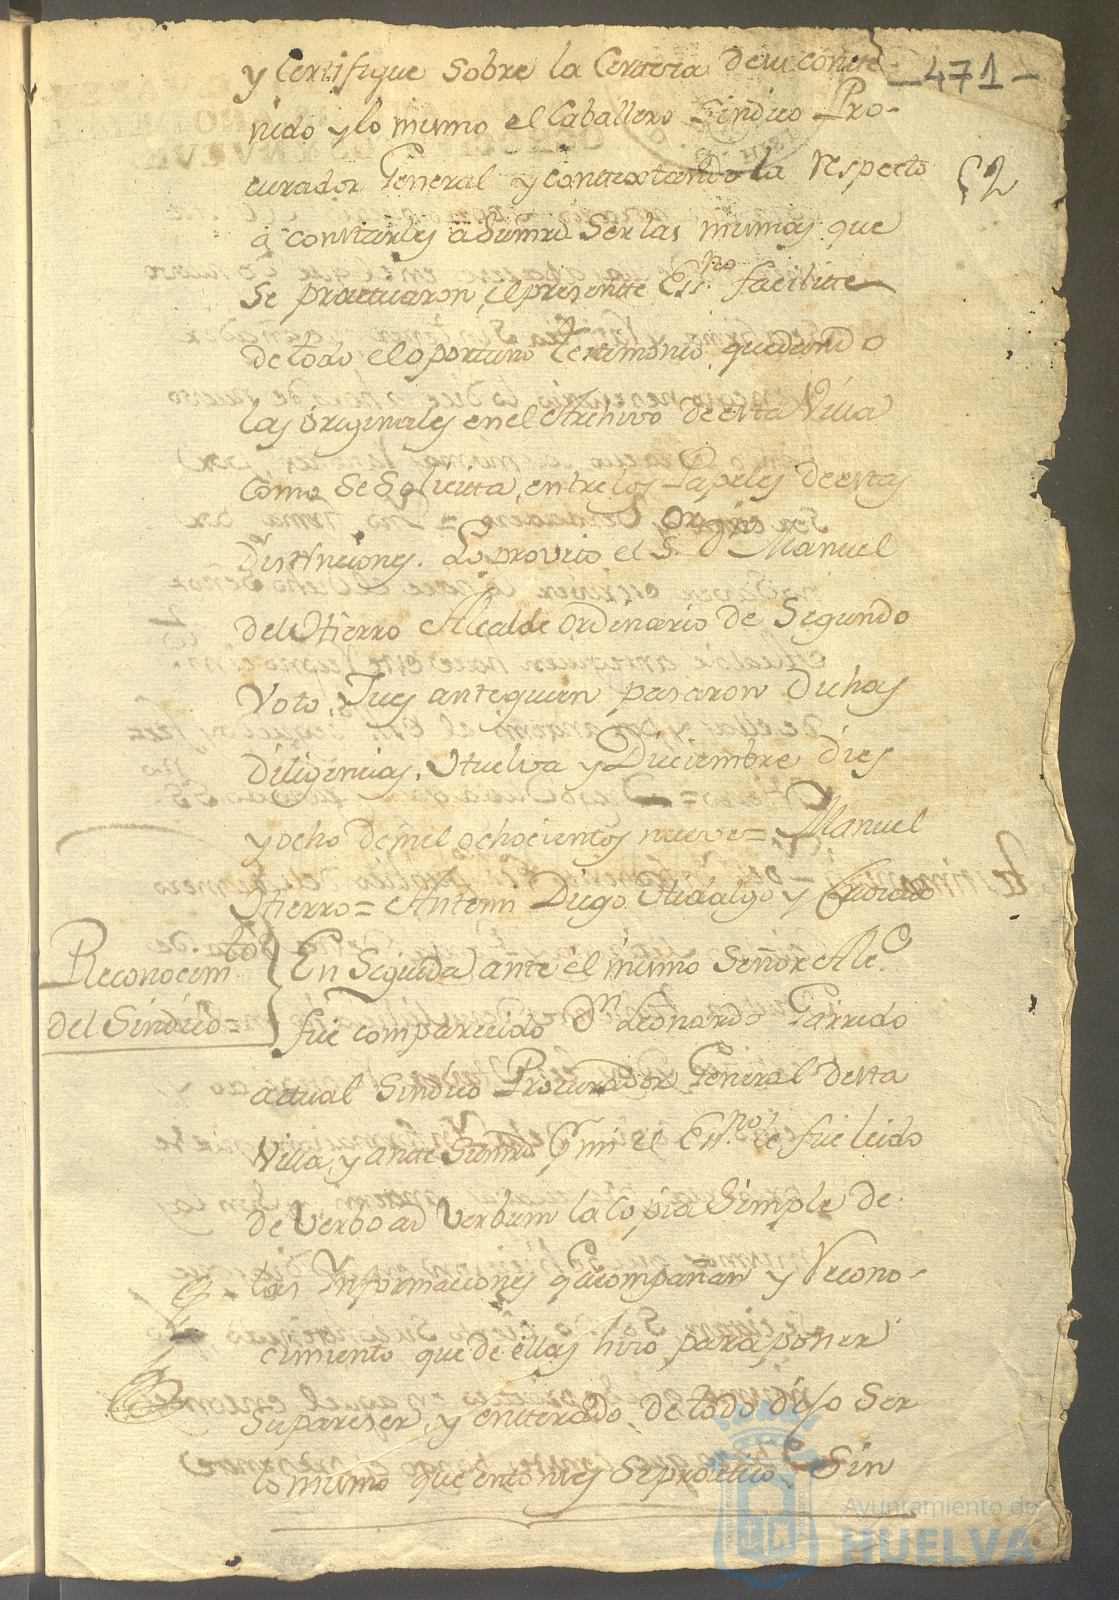 y Certifique Sobre la Certeza de su conte-
-471-
nido y lo mismo el Caballero Sindico Pro-
52
curador General y contextando la respecto
q constarles a Sumrd Ser las mismas que
Se practicaron, el presente Essno facilite
de todo el oportuno testimonio, quedando
las originales en el Archivo de esta Villa
como Se Solicita, entre los Papeles de estas
Distinciones. Lo proveio el Sor Dn Manuel
del Hierro Alcalde ordenario de Segundo
Voto, Jues ante quien pasaron Dichas
Diligencias. Huelva y Diciembre dies
y ocho de mil ochocientos nueve = Manuel
Hierro = Antemi Diego Hidalgo y
Reconocimto
del Sindico =
En Seguida ante el mismo Señor Alce
fue comparecido Dn Leonardo Garrido
actual Sindico Procurador General desta
Villa, y ante Sumrd y mi el Essno le fue leido
de Verbo ad Verbum la copia Simple de
las Informaciones q acompañan y Recono-
cimiento que de ellas hizo para poner
Su pareser, y enterado de todo dijo Ser
lo mismo que entonces Se practicó Sin
Ayuntamiento de
HUELVA